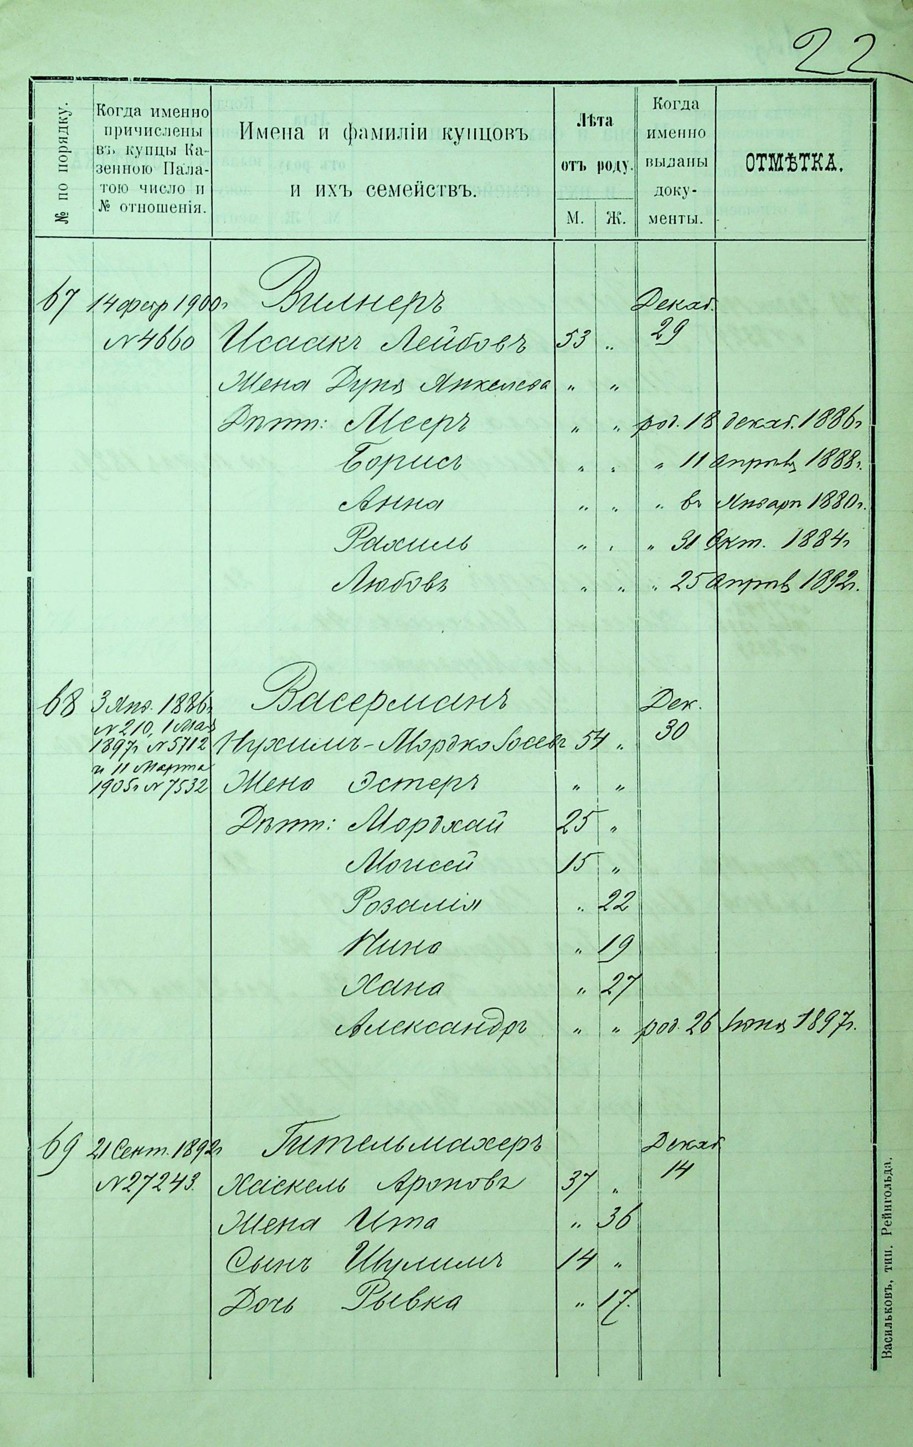 22
№ по порядку.
Когда именно причислены въ купцы Казенною Палатою число и № отношенія.
Имена и фамиліи купцовъ и ихъ семействъ.
Лѣта отъ роду.
М. Ж.
Когда именно выданы документы.
ОТМѢТКА.
67 14 февр 1900г Вилнеръ Декаб.
№ 4660 Исаакъ Лейбовъ 53 „ 29
Жена Дуня Янкелева „ „
Дѣти: Мееръ „ „ род. 18 декаб. 1886г
Борисъ „ „ „ 11 апрѣля 1888г.
Анна „ „ „ въ Январѣ 1880г.
Рахиль „ „ „ 31 Окт. 1884г
Любовь „ „ „ 25 апрѣля 1892г.
68 3 Янв. 1886г Васерманъ Дек.
№ 210, 1 Мая 30
1897г №5712 Нухимъ-Мордко Іосевъ 54 „
и 11 Марта
1905г № 7532 Жена Эстеръ „ „
Дѣти: Мордхай 25 „
Моисей 15 „
Розалія „ 22
Нина „ 19
Хана „ 27
Александръ „ „ род. 26 Іюня 1897г.
69 21 Сент. 1892г Гительмахеръ Декаб
№ 27243. Хаскель Ароновъ 37 „ 14
Жена Ита „ 36
Сынъ Шулимъ 14 „
Дочь Рывка „ 17.
Васильковъ, тип. Рейнгольда.